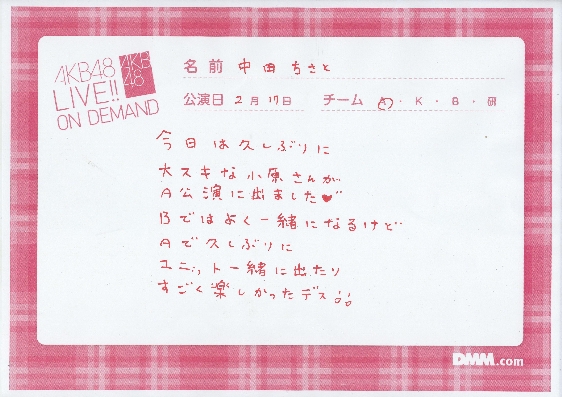 AKB48
LIVE!!
ON DEMAND
AKB
48
名前 中田ちさと
公演日 2月17日 チーム A・K・B・研
今日は久しぶりに
大スキな小原さんが
A公演に出ました♥
Bではよく一緒になるけど
Aで久しぶりに
ユニット一緒に出たり
すごく楽しかったデス
DMM.com